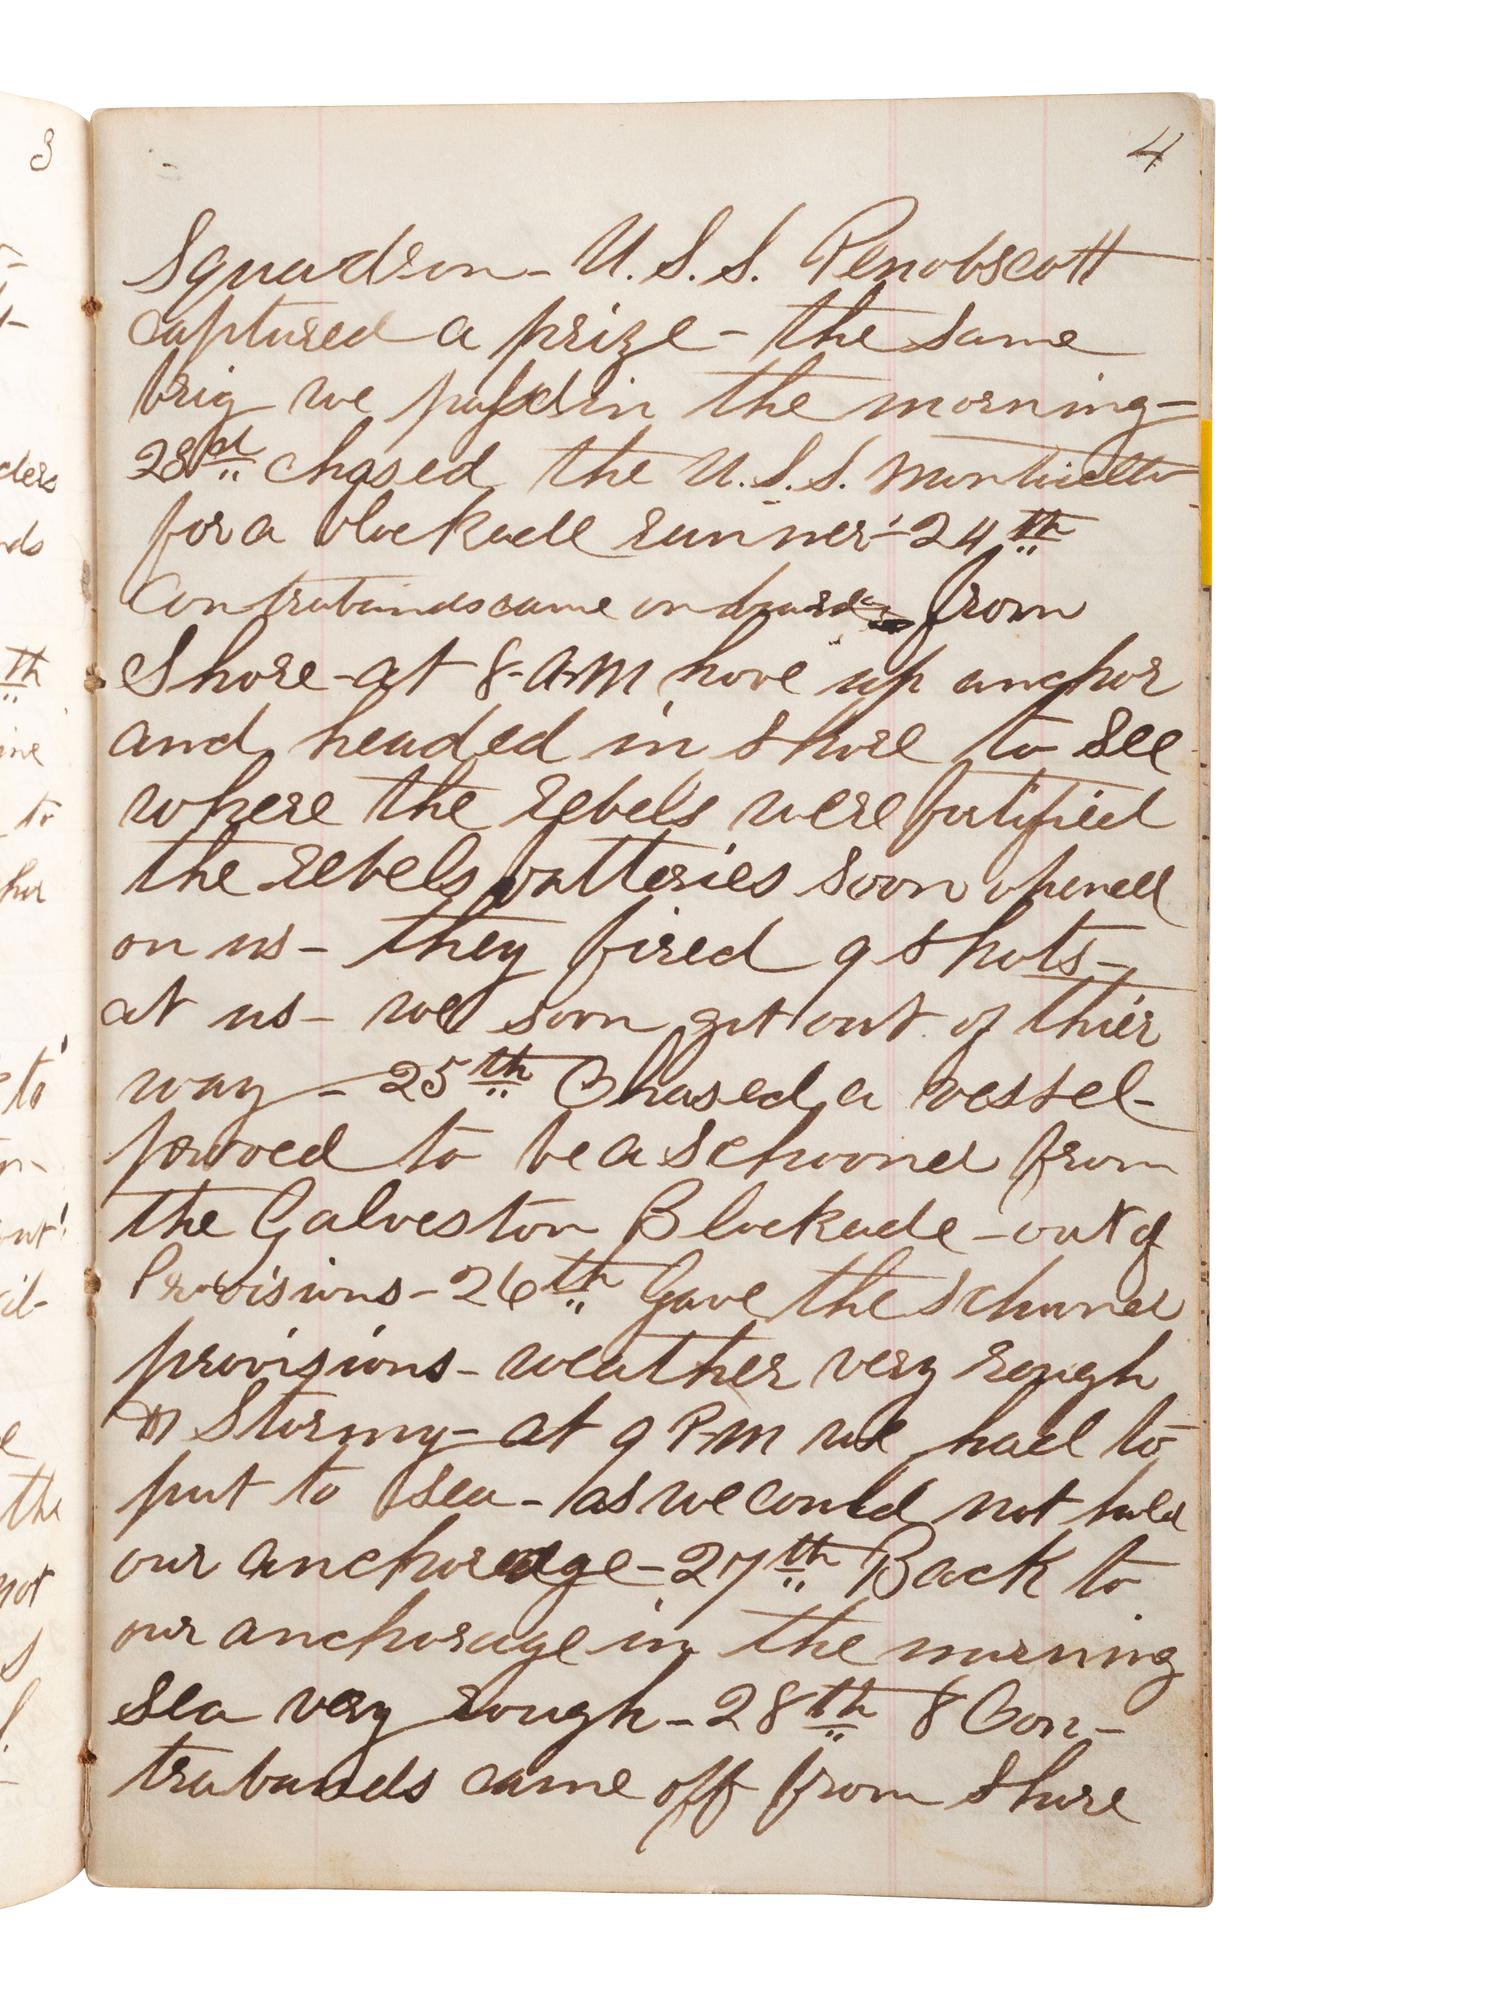 3
4
Squadron - U.S.S. Penobscott
captured a prize - the same
brig we passd in the morning -
23rd chased the U.S.S. Monticello
for a blockade runner - 24th
Contrabands came on board from
Shore - at 8 - A.M hove up anchor
and headed in shore to see
where the rebels were fortified
the rebels batteries soon opened
on us - they fired 9 shots -
at us - we soon got out of thier
way - 25th Chased a vessel -
proved to be a schooner from
the Galveston Blockade - out of
Provisions - 26th Gave the schooner
provisions - weather very rough
Stormy - at 9 P.M we had to
put to sea - as we could not hold
our anchorage - 27th Back to
our anchorage in the morning
sea very rough - 28th 8 Con-
trabands came off from shore